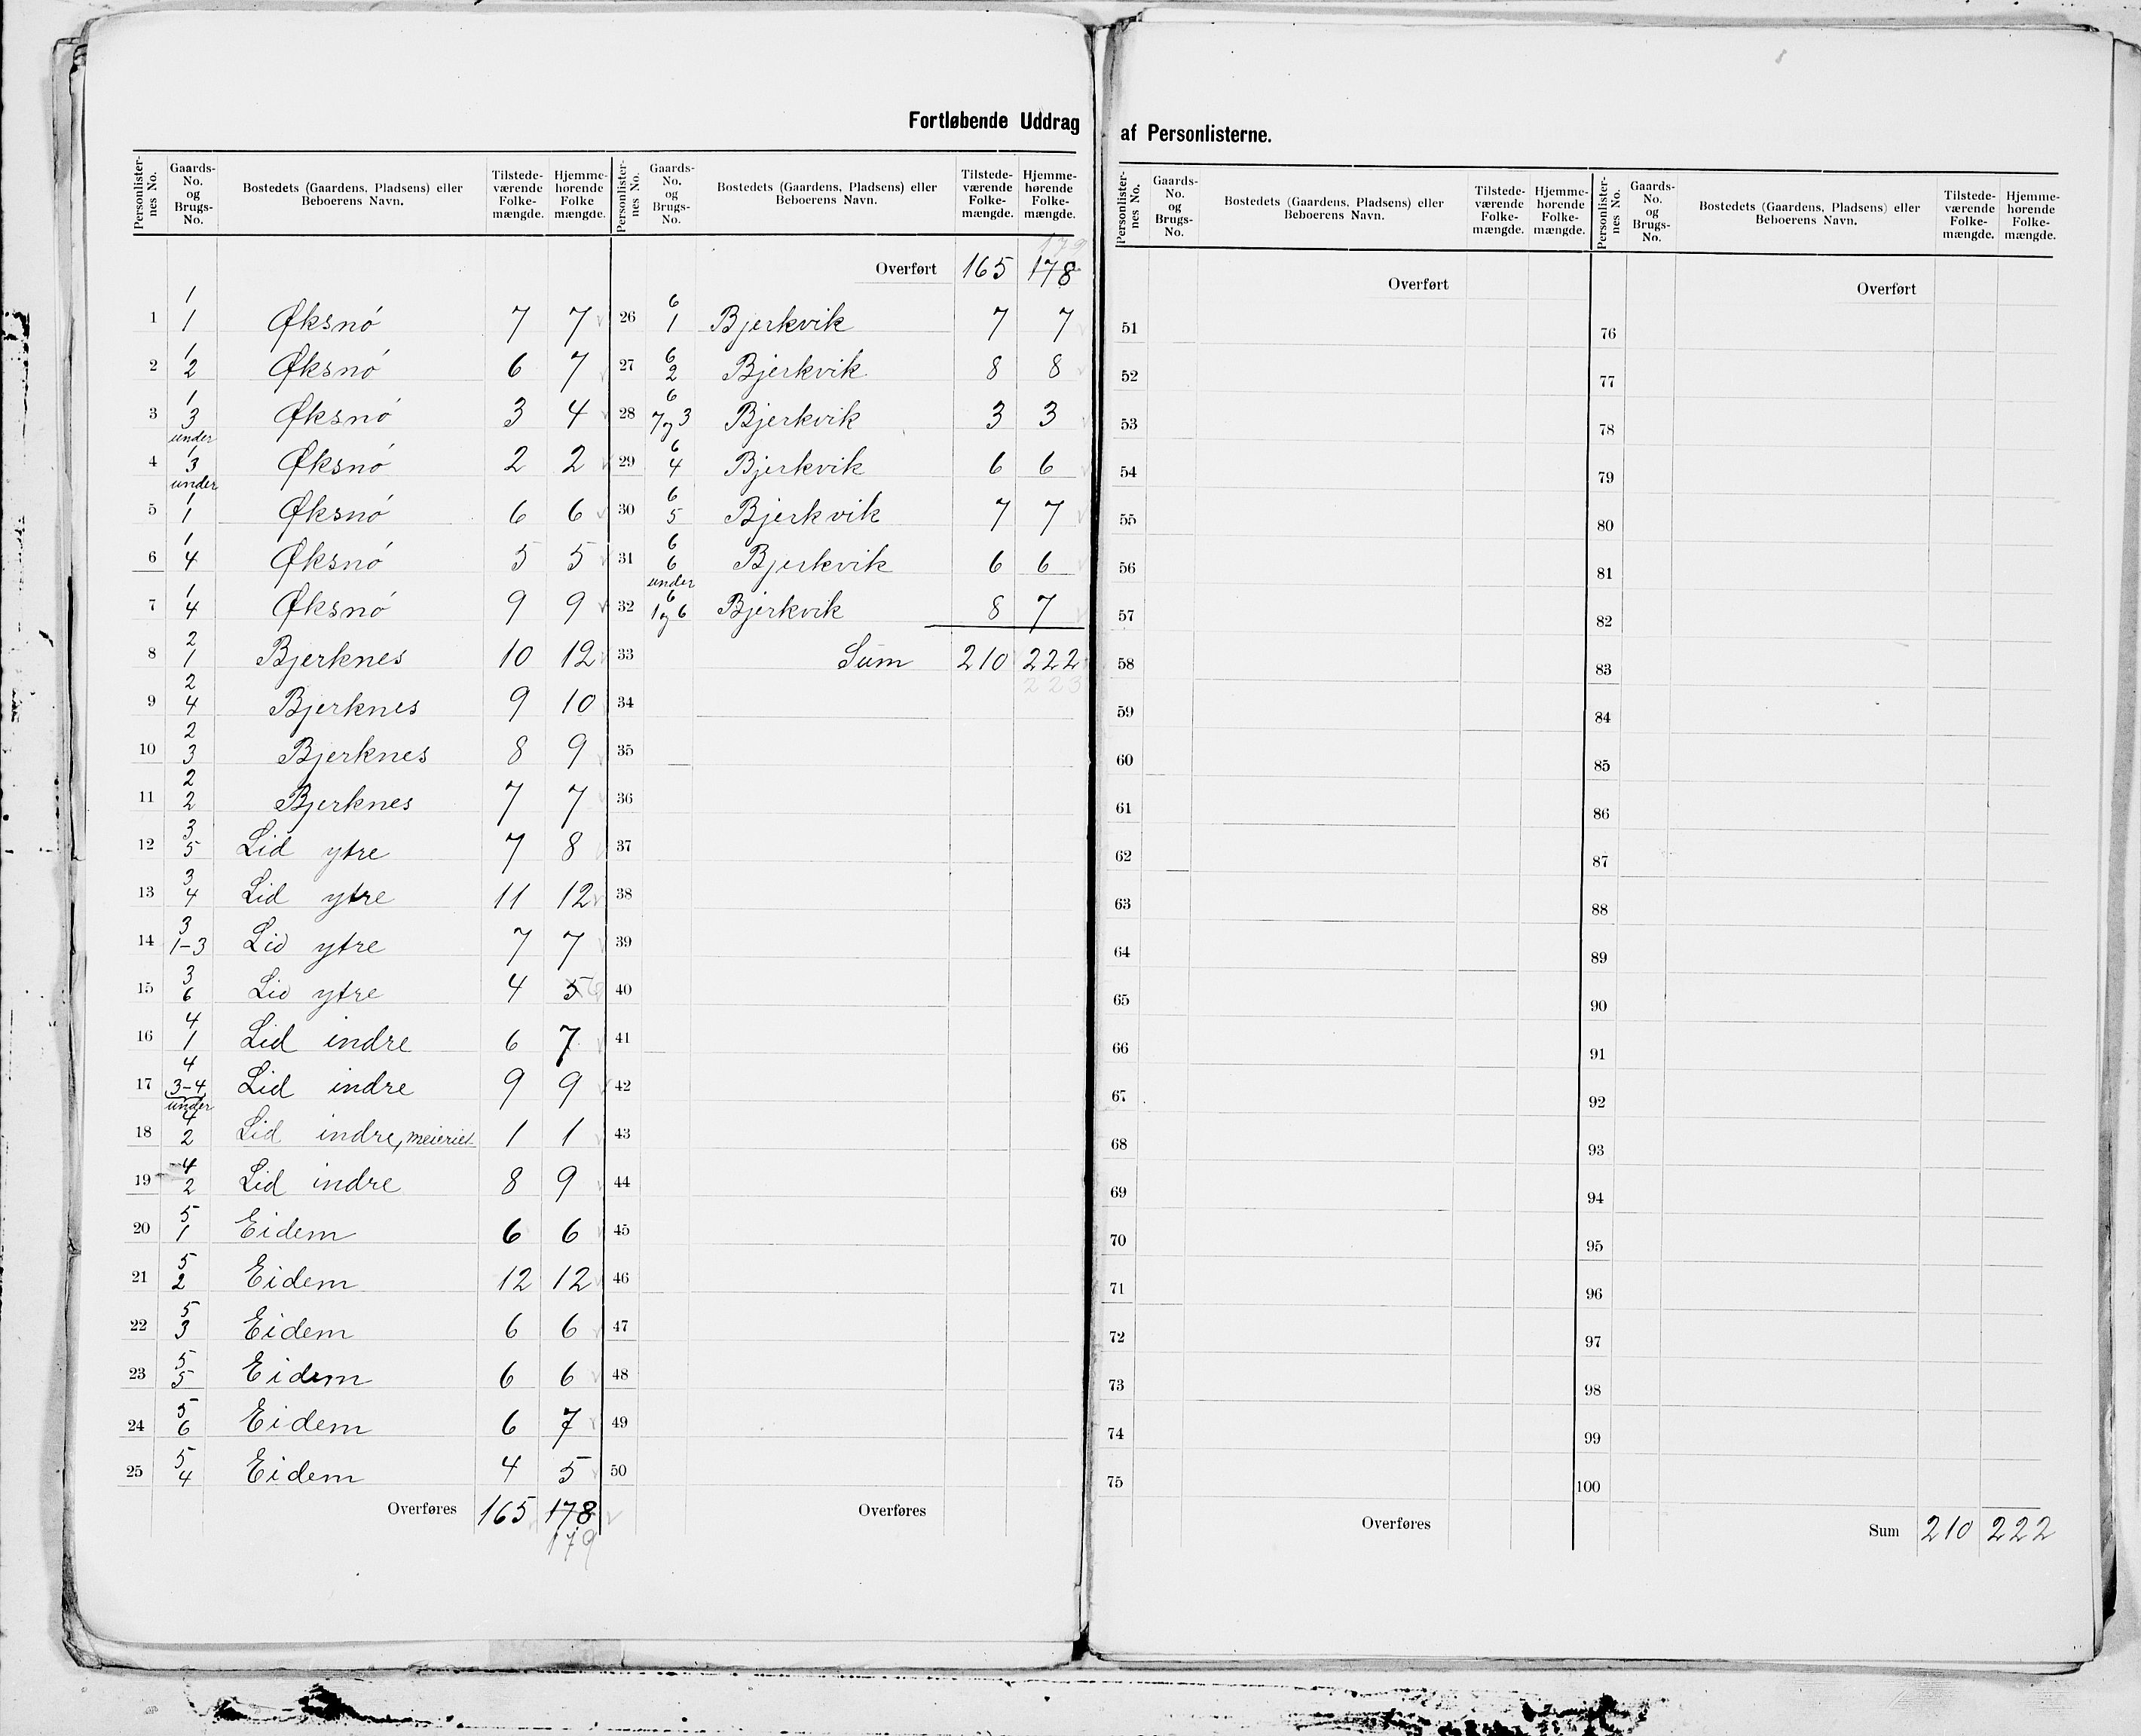 Fortløbende Uddrag af Personlisterne.
Personlister- nes No. | Gaards- No. og Brugs- No. | Bostedets (Gaardens, Pladsens) eller Beboerens Navn. | Tilstede- værende Folke- mængde. | Hjemme- hørende Folke mængde.
1 | 1 1 | Øksnó | 7 | 7
2 | 1 2 | Øksnó | 6 | 7
3 | 1 3 | Øksnó | 3 | 4
4 | under 1 3 | Øksnó | 2 | 2
5 | under 1 1 | Øksnó | 6 | 6
6 | 1 4 | Øksnó | 5 | 5
7 | 1 4 | Øksnó | 9 | 9
8 | 2 1 | Bjerknes | 10 | 12
9 | 2 4 | Bjerknes | 9 | 10
10 | 2 3 | Bjerknes | 8 | 9
11 | 2 2 | Bjerknes | 7 | 7
12 | 3 5 | Lid ytre | 7 | 8
13 | 3 4 | Lid ytre | 11 | 12
14 | 3 1-3 | Lid ytre | 7 | 7
15 | 3 6 | Lid ytre | 4 | 5 6
16 | 4 1 | Lid indre | 6 | 7
17 | 4 3-4 | Lid indre | 9 | 9
18 | under 4 2 | Lid indre, meieriet | 1 | 1
19 | 4 2 | Lid indre | 8 | 9
20 | 5 1 | Eidem | 6 | 6
21 | 5 2 | Eidem | 12 | 12
22 | 5 3 | Eidem | 6 | 6
23 | 5 5 | Eidem | 6 | 6
24 | 5 6 | Eidem | 6 | 7
25 | 5 4 | Eidem | 4 | 5
Overføres | 165 | 178
179
Personlister- nes No. | Gaards- No. og Brugs- No. | Bostedets (Gaardens, Pladsens) eller Beboerens Navn. | Tilstede- værende Folke- mængde. | Hjemme- hørende Folke- mængde.
179
Overført | 165 | 178
26 | 6 1 | Bjerkvik | 7 | 7
27 | 6 2 | Bjerkvik | 8 | 8
28 | 6 7 og 3 | Bjerkvik | 3 | 3
29 | 6 4 | Bjerkvik | 6 | 6
30 | 6 5 | Bjerkvik | 7 | 7
31 | 6 6 | Bjerkvik | 6 | 6
32 | under 6 1 og 6 | Bjerkvik | 8 | 7
33 | Sum | 210 | 222
223
34
35
36
37
38
39
40
41
42
43
44
45
46
47
48
49
50
Overføres
Personlister- nes No. | Gaards- No. og Brugs- No. | Bostedets (Gaardens, Pladsens) eller Beboerens Navn. | Tilstede- værende Folke- mængde. | Hjemme- hørende Folke- mængde.
Overført
51
52
53
54
55
56
57
58
59
60
61
62
63
64
65
66
67
68
69
70
71
72
73
74
75
Overføres
Personlister- nes No. | Gaards- No. og Brugs- No. | Bostedets (Gaardens, Pladsens) eller Beboerens Navn. | Tilstede- værende Folke- mængde. | Hjemme- hørende Folke- mængde.
Overført
76
77
78
79
80
81
82
83
84
85
86
87
88
89
90
91
92
93
94
95
96
97
98
99
100
Sum | 210 | 222